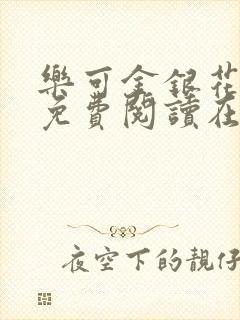 樂可金銀花
免費閱讀在
夜空下的靚仔